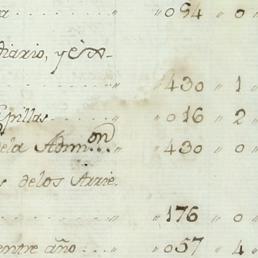 a . . . . . . . . . . . " " 094 " 0 "
diario, y ês A-
. . . . . . . . . " " 430 " 1
Villas . . . . . " " 016 " 2
dela Admon. . . " " 430 " 0
s delos Arrie-
. . . . . . . . . " " 176 " 0
entre año . . . " " 057 " 4